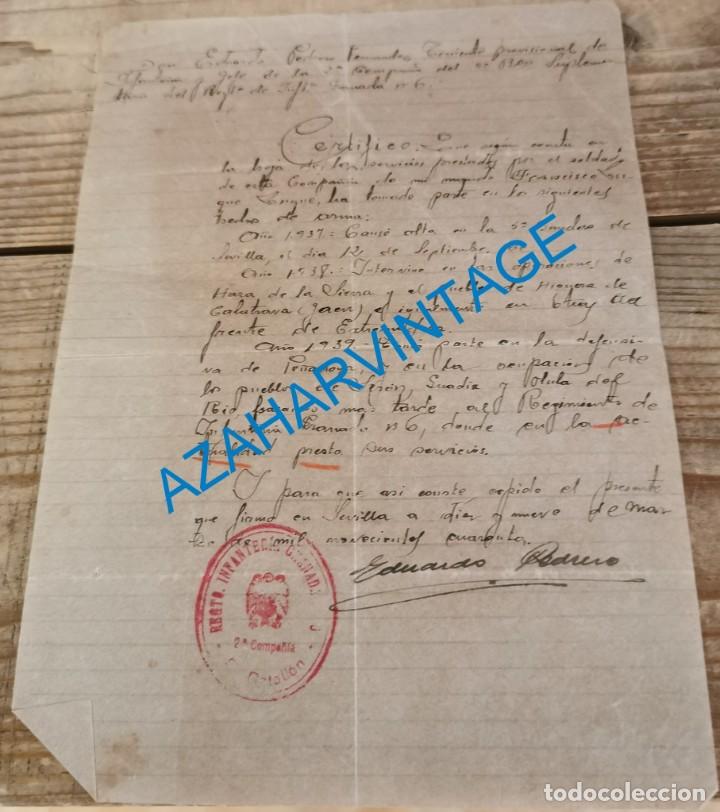 Don Eduardo Pedrero Fernandez, Teniente provisional de
Infanteria y Jefe de la 2ª Compañia del Bon
del Regtº de Infª Granada nº 6.
Certifico: Que segun consta en
la hoja de los servicios prestados por el soldado
de esta Compañia de mi mando Francisco
ha tomado parte en los siguientes
hechos de arma:
Año 1937.- Causó alta en la de
Sevilla, el dia 12 de Septiembre.
Año 1938.- Intervino en las operaciones de
de la Sierra y el pueblo de Higuera de
Calatrava (Jaen) e igualmente en
frente de Extremadura.
Año 1939.- parte en la defensi-
va de Peñarroya, y en la ocupación de
los pueblos de y del
Rio pasando mas tarde al Regimiento de
Infanteria Granada nº 6, donde en la ac-
tualidad presta sus servicios.
Y para que asi conste, expido el presente
que firmo en Sevilla a diez y nueve de Mar-
zo de mil novecientos cuarenta.
Eduardo Pedrero
REGTO. INFANTERIA GRANADA 6
2ª Compañia
Batallón
AZAHARVINTAGE
todocoleccion